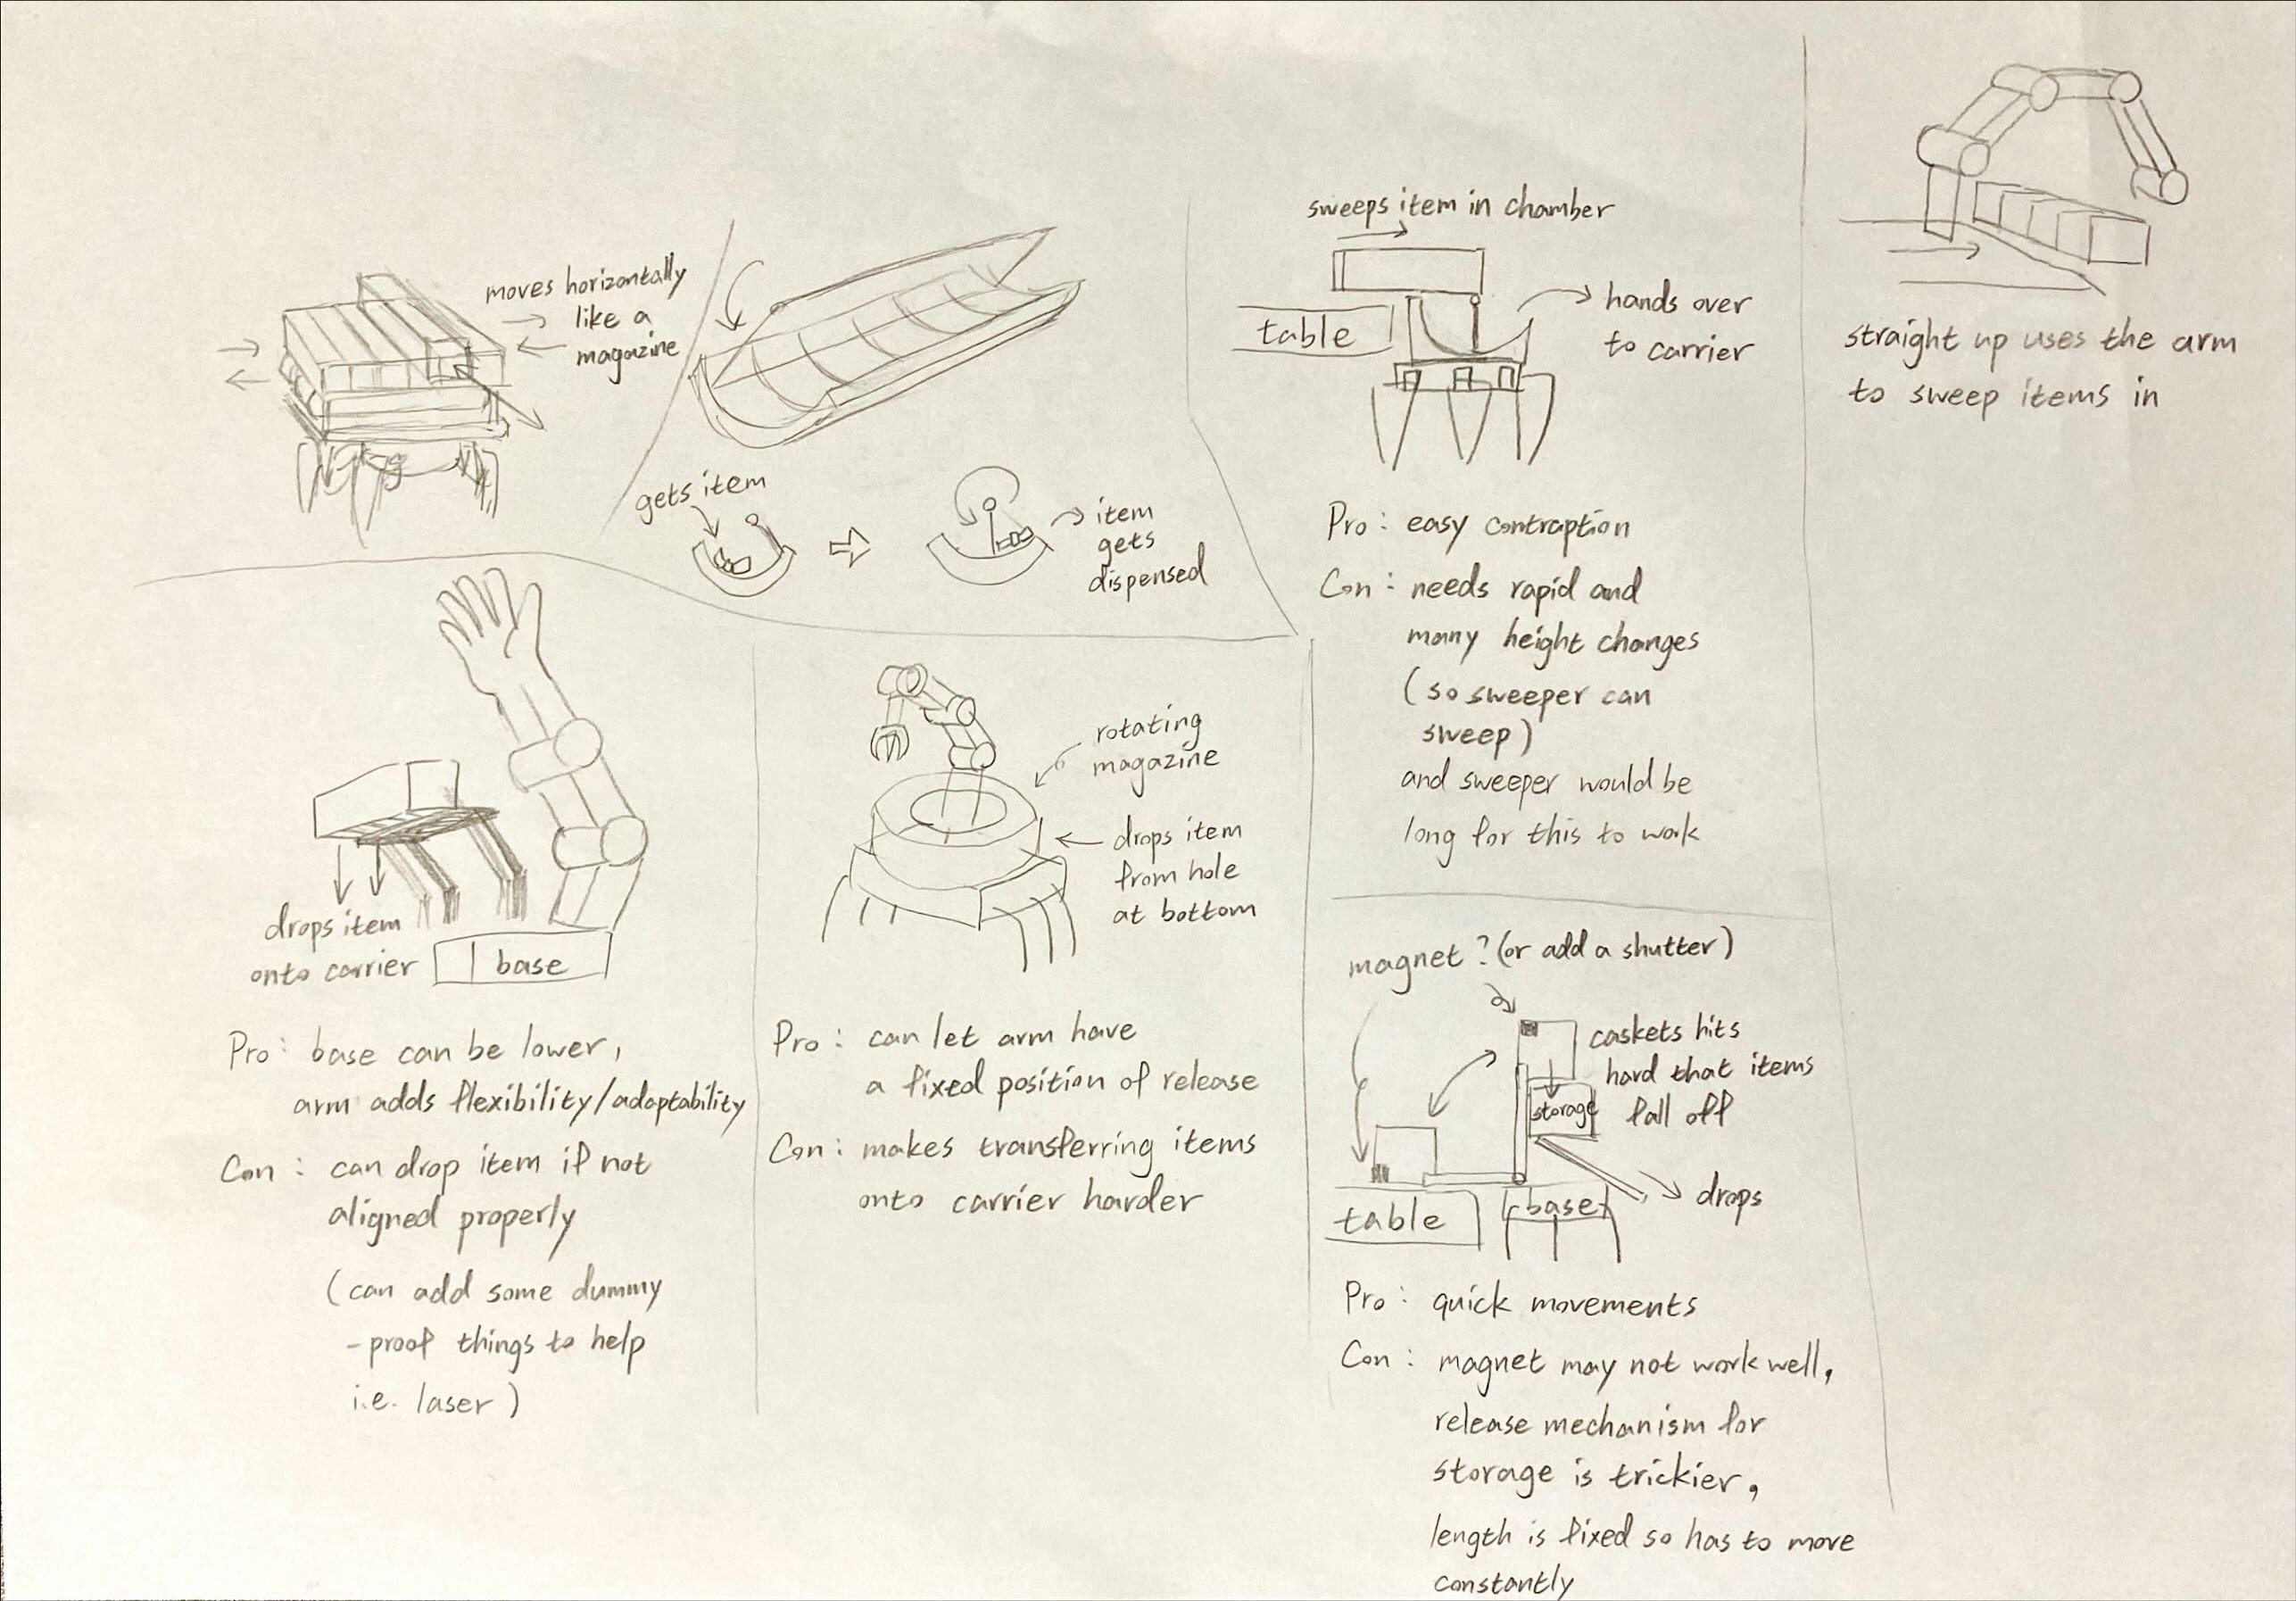 moves horizontally
like a
magazine
gets item
item
gets
dispensed
sweeps item in chamber
table
hands over
to carrier
Pro : easy contraption
Con : needs rapid and
many height changes
(so sweeper can
sweep)
and sweeper would be
long for this to work
straight up uses the arm
to sweep items in
drops item
onto carrier
base
Pro : base can be lower,
arm adds flexibility/adaptability
Con : can drop item if not
aligned properly
(can add some dummy
-proof things to help
i.e. laser)
rotating
magazine
drops item
from hole
at bottom
Pro : can let arm have
a fixed position of release
Con : makes transferring items
onto carrier harder
magnet? (or add a shutter)
caskets hits
hard that items
fall off
storage
drops
table
base
Pro : quick movements
Con : magnet may not work well,
release mechanism for
storage is trickier,
length is fixed so has to move
constantly